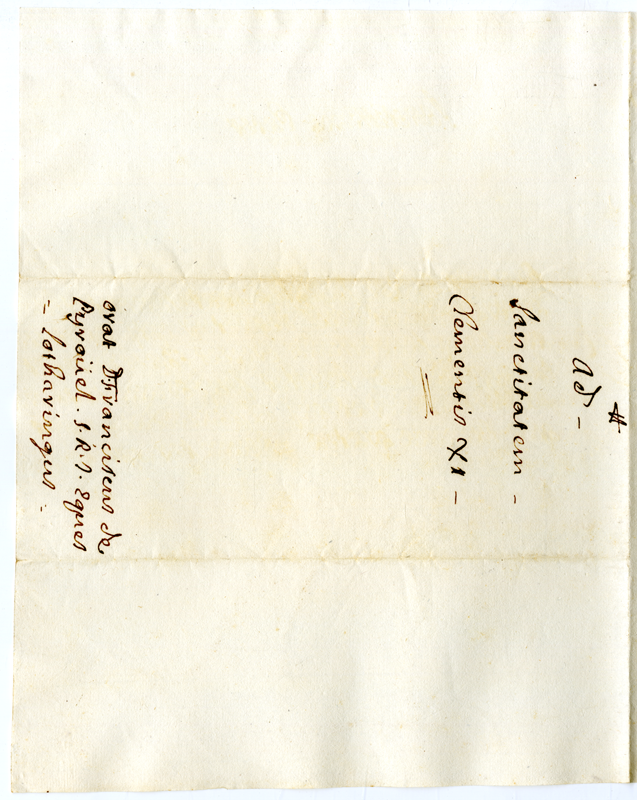 #
ad -
Sanctitatem -
Clementis XI -
orat D Franciscus de
S. R. I. Eques
- Lotharingus -